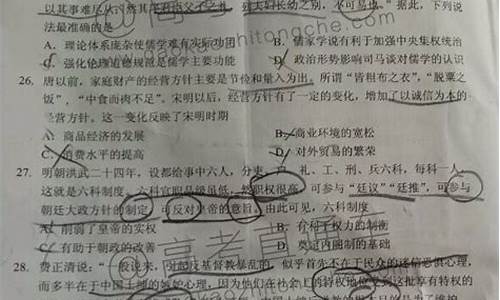 以其事难尽从，然其序君臣父子之礼，列夫妇长幼之别，不可易也。"据此，下列说
法最准确的是
A．理论体系庞杂使儒学难有实际功用 B．儒家学说有利于加强中央集权统治
C．强化伦理道德规范是儒学主要功能 D．政治形势影响司马谈对儒学的认识
26．唐以前，家庭财产的经营方针主要是节俭和量入为出，所谓"皆粗布之衣"，"脱粟之
饭"，"中食而肉不足"。宋明以后，经营方针有了一定的变化，增加了以诚信为本的
经营方针。这一变化反映了宋明时期
A．商品经济的发展 B．商业环境的宽松
C．消费水平的提高 D．对外贸易的繁荣
27．明朝洪武二十四年，设都给事中六人，分吏、户、礼、工、刑、兵六科，每科一人，
这就是六科制度。六科官职品级虽低，然职权很高，可参与"廷议""廷推"，可参与
朝廷大政方针的制定，可反对皇帝的意旨。由此可见，六科制度
A．削弱了皇帝的实权 B．有利于权力的制衡
C．有助于朝政的改善 D．奠定内阁制的基础
28．费正清说："一般说来，对起反基督教暴乱的，似乎首先不在于民众的迷信恐惧心理，
而多半在于中国士绅的嫉妒心理，因为他们在社会上的特权地位受到这批享有特权的
@高考直通车